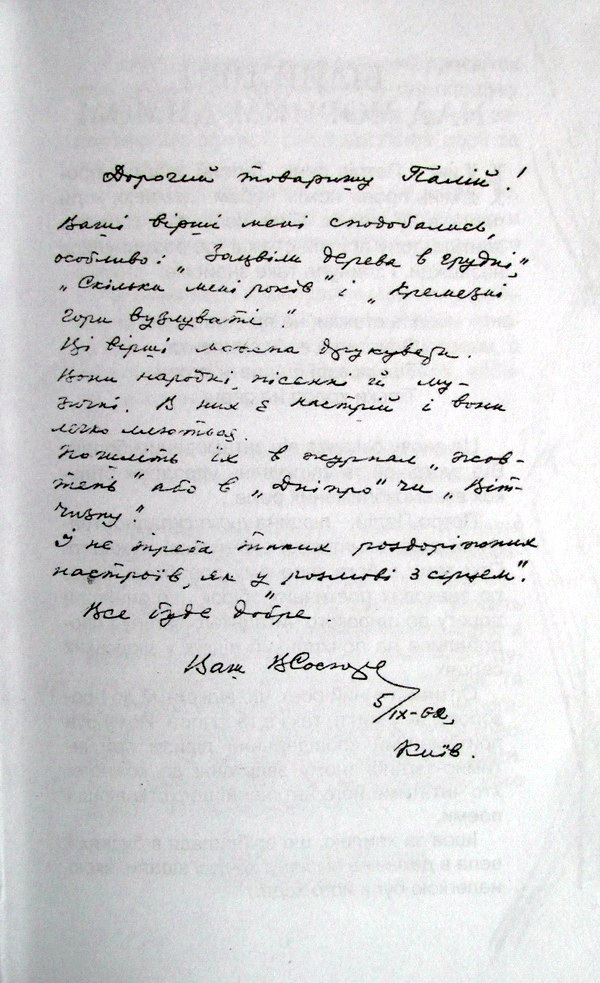 Дорогий товаришу Палій!
Ваші вірші мені сподобались,
особливо: „Зацвіли дерева в грудні",
„Скільки мені років" і „Кремезні
гори вузлуваті".
Ці вірші можна друкувати.
Вони народні, пісенні й му-
зичні. В них є настрій і вони
легко ллються.
Пошліть їх в журнал „Жов-
тень" або в „Дніпро" чи „Віт-
чизну"
І не треба таких роздоріжних
настроїв, як у „розмові з серцем".
Все буде добре
Ваш ВСосюра
5/IX-62,
Київ.